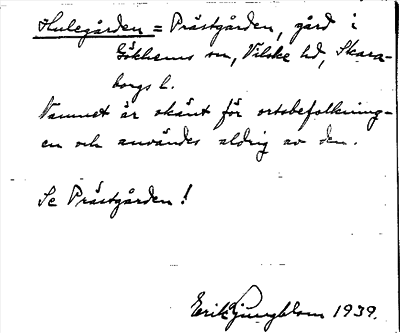 Hulegården = Prästgården, gård i
Gökhems sn, Vilske hd, Skara-
borgs l.
Namnet är okänt för ortsbefolkning-
en och användes aldrig av den.
Se Prästgården!
Erik Ljungblom 1939.